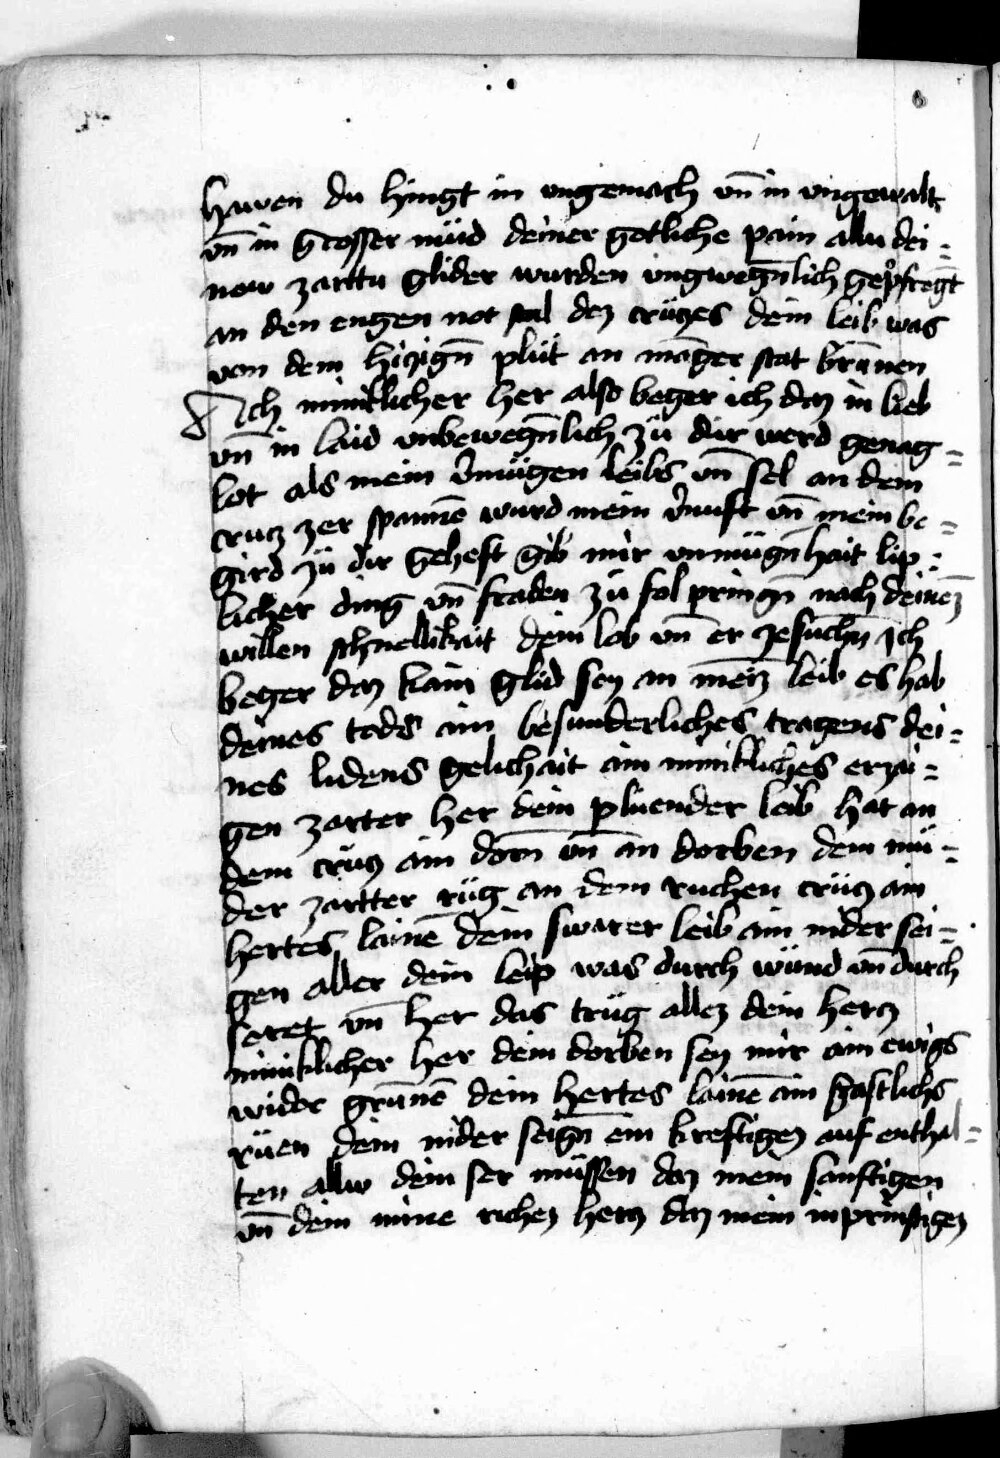 hawen du hingt in ungemach vn̄ in vngewalt
vn̄ in grosser müd deiner gotliche pain allu dei=
new zarttu glider wurden ungwegn̄lich gepfregt
an den engen not stal dez crüczes dein leib was
von dem hiczign̄ plüt an māger stat brūnen
Ach miniklicher her also beger ich daz in lieb
vn̄ in laid unbewegn̄lich zü dir werd genag=
lot als mein vmügen leibs vn̄ sel an dein
crucz zer spannē wurd mein vnuft vn̄ mein be=
gird zü dir geheft gib mir unmügn̄hait lip=
licher ding vn̄ fraden zü fol pringn̄ nach deinēz
willen schnellikait dein lob vn̄ er ze suchn̄ Ich
beger daz kain glid sey an mēiz leib es hab
deines tods ain besunderliches tragens dei=
nes lidens gelichait ain minikliches erzai=
gen zarter her dein plüender leib hat an
dem crücz ain dorn̄ vn̄ an dorben dem mü=
der zartter rüg an dem ruchen crücz ain
hertes lainē dein swarer leib ain nider sei=
gen aller dein leip was durch wünd vn̄ durch
seret vn̄ her das trüg allez dein hercz
miniklicher her dein dorben sey mir ain ewigs
wider grünē dein hertes lainē ain gastlichs
rüen dein nider seign̄ ein kreftigez auf enthal=
ten allw dein ser müssen daz mein sanftigen
vn̄ dein mine richez hercz daz mein inprinstigez